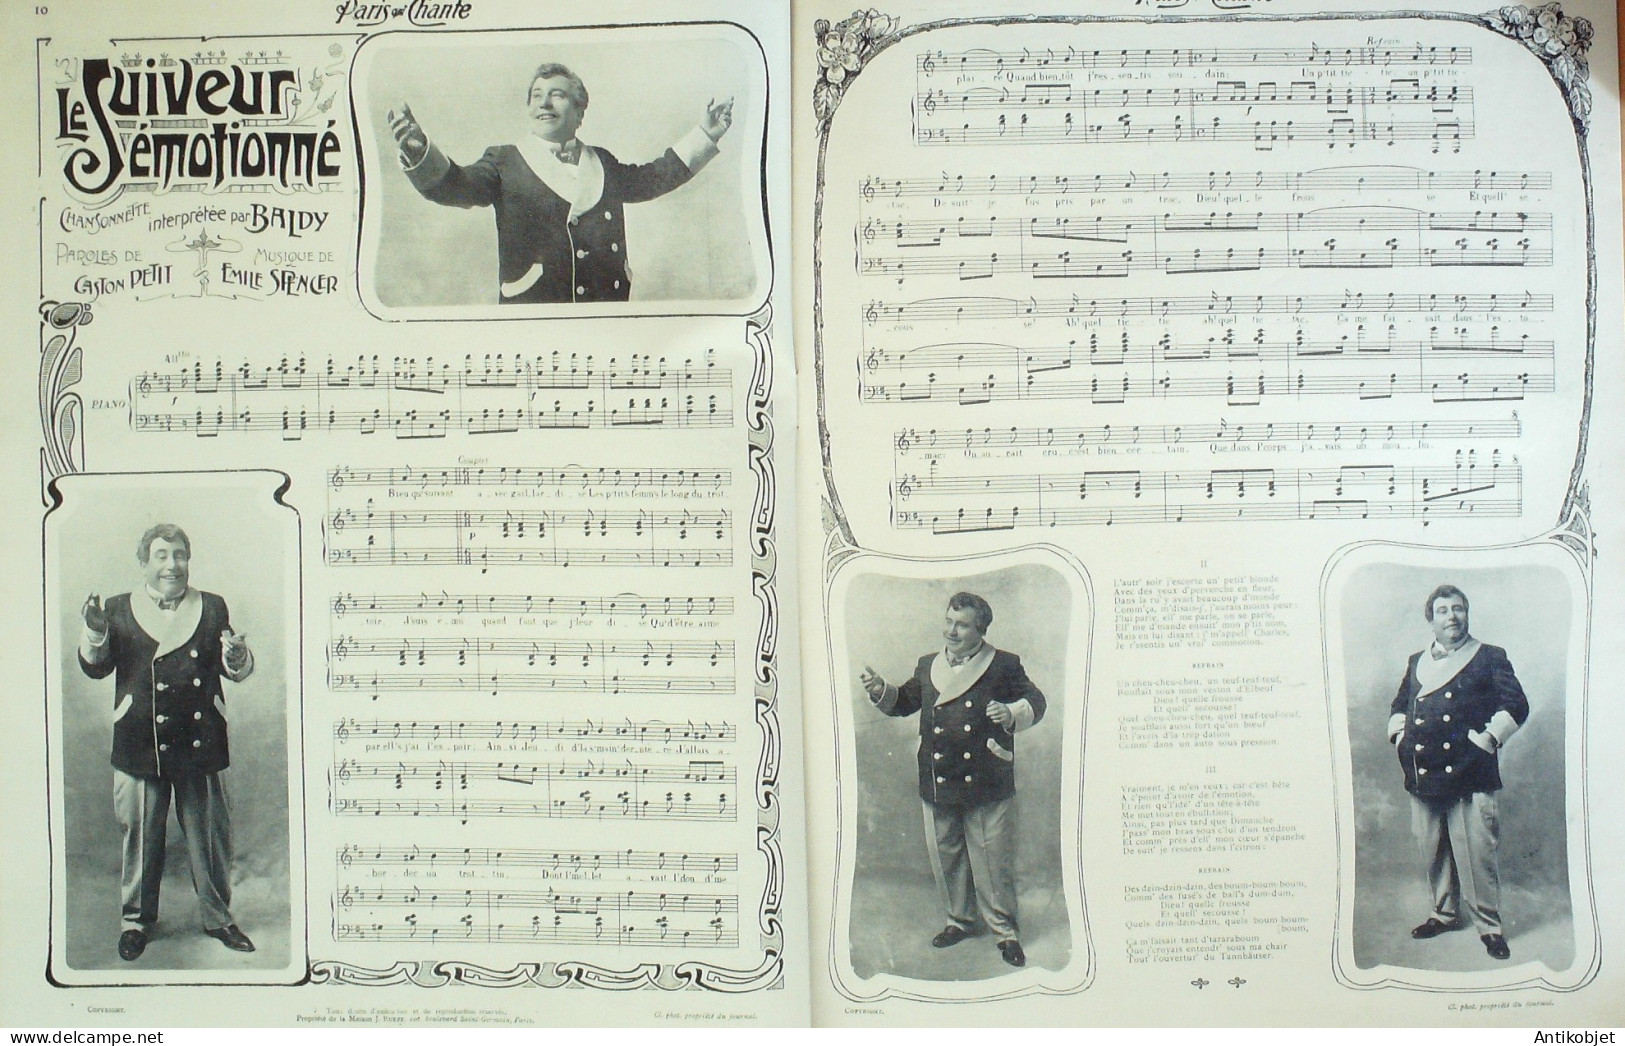 10
Paris qui Chante
Le Suiveur
émotionné
Chansonnette interprétée par Baldy
Paroles de
Gaston Petit
Musique de
Emile Spencer
All
PIANO
Couplet
Bien qu'suivant a_vec gail_lar_di_se Les p'tits femm's le long du trot_
toir, J'suis é_mu quand faut que j'leur di_se Qu'd'être aimé
par ell's j'ai l'es_poir: Ain_si jeu_di d'la s'main' der_niè_re J'allais a_
bor_der un trot_tin, Dont l'mol_let a_vait l'don d'me
COPYRIGHT.
Tous droits d'exécution et de reproduction réservés.
Propriété de la Maison J. RUEFF, boulevard Saint-Germain, Paris.
Cl. phot. propriété du journal.
Refrain
plai_re Quand bien_tôt j'res_sen_tis sou_dain: Un p'tit tic_tic, un p'tit tic_
tac, De suit' je fus pris par un trac, Dieu! quel_le frous_se Et quell' se_
cous_se! Ah! quel tic_tic ah! quel tic_tac, Ça me fai_sait dans l'es_to_
mac; On au_rait cru, c'est bien cer_tain, Que dans l'corps j'a_vais un mou_lin.
II
L'autr' soir j'escorte un' petit' blonde
Avec des yeux d'pervenche en fleur,
Dans la ru' y avait beaucoup d'monde
Comm'ça, m'disais-j', j'aurais moins peur:
J'lui parle, ell' me parle, on se parle,
Ell' me d'mande ensuit' mon p'tit nom,
Mais en lui disant: j' m'appell' Charles,
Je r'ssentis un' vrai' commotion.
REFRAIN
Un cheu-cheu-cheu, un teuf-teuf-teuf,
Ronflait sous mon veston d'Elbeuf
Dieu! quelle frousse
Et quell' secousse!
Quel cheu-cheu-cheu, quel teuf-teuf-teuf,
Je soufflais aussi fort qu'un bœuf
Et j'avais d'la trépidation
Comm' dans un auto sous pression.
III
Vraiment, je m'en veux; car c'est bête
A c'point d'avoir de l'émotion,
Et rien qu'l'idé' d'un tête-à-tête
Me met tout en ébullition;
Ainsi, pas plus tard que Dimanche
J'pass' mon bras sous c'lui d'un tendron
Et comm' près d'ell' mon cœur s'épanche
De suit' je ressens dans l'citron:
REFRAIN
Des dzin-dzin-dzin, des boum-boum-boum,
Comm' des fusé's de ball's dum-dum,
Dieu! quelle frousse
Et quell' secousse!
Quels dzin-dzin-dzin, quels boum-boum-
[boum,
Ça m'faisait tant d'tararaboum
Que j'croyais entendr' sous ma chair
Tout' l'ouvertur' du Tannhäuser.
COPYRIGHT.
Cl. phot. propriété du journal.
Antikobjet